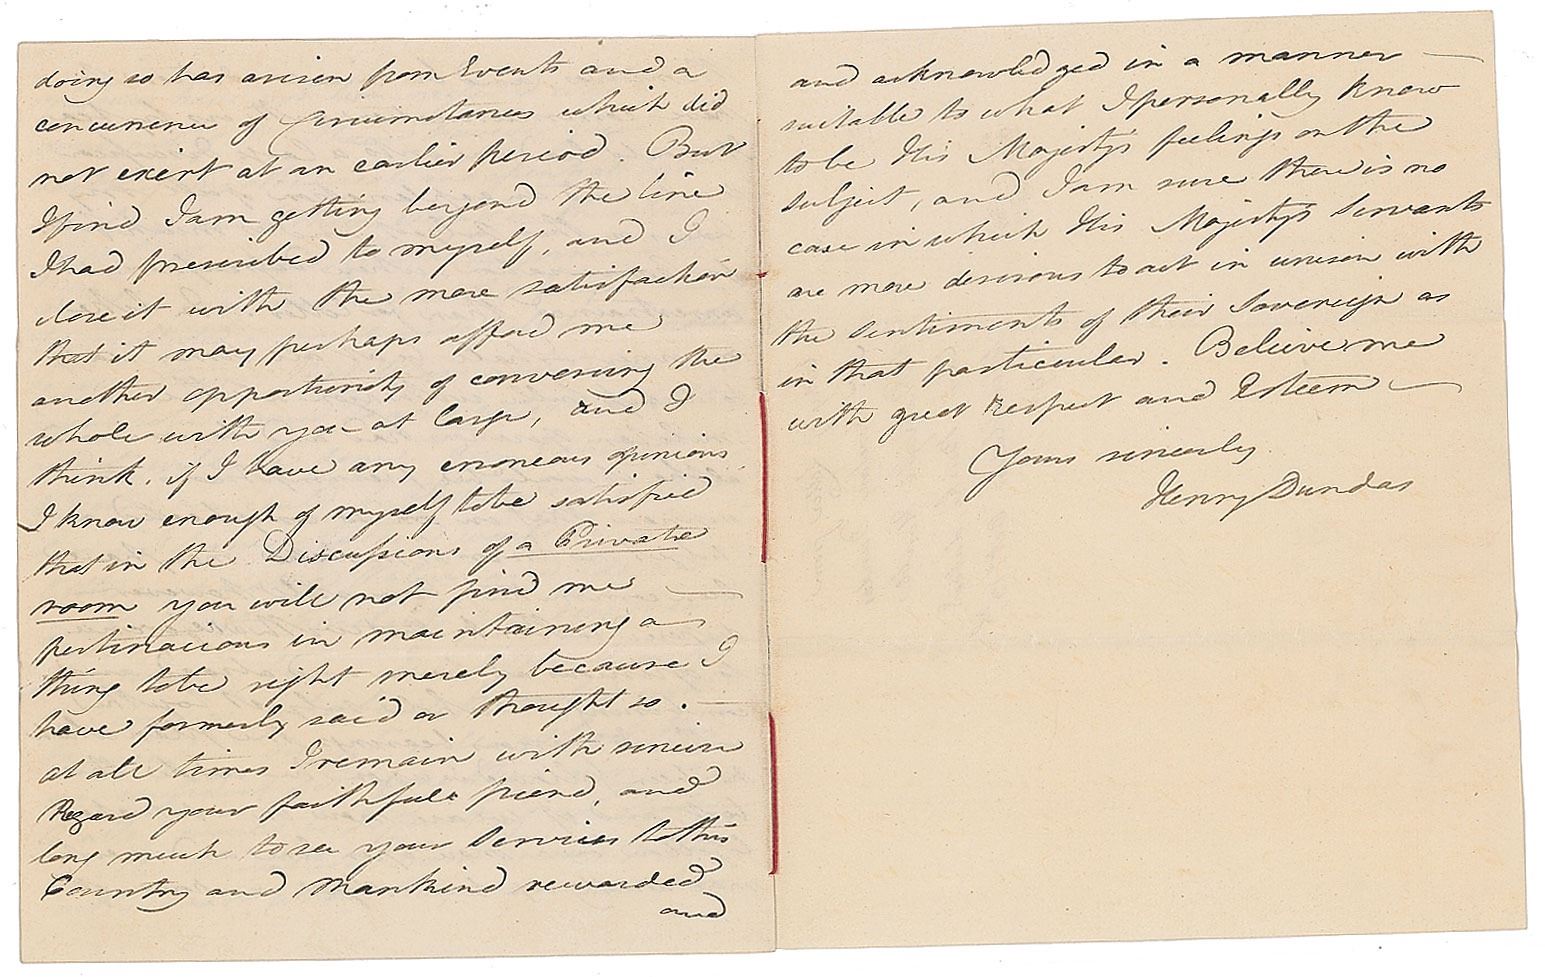 doing so has arisen from Events and a
concurrence of Circumstances which did
not exist at an earlier period. But
I find I am getting beyond the line
I had prescribed to myself, and I
close it with the more satisfaction
that it may perhaps afford me
another opportunity of conversing the
whole with you at large, and I
think, if I have any erroneous opinions,
I know enough of myself to be satisfied
that in the Discussions of a Private
room you will not find me
pertinacious in maintaining a
thing to be right merely because I
have formerly said or thought so.
at all times I remain with sincere
Regard your faithfull friend, and
long much to see your Services to this
Country and Mankind rewarded
and
and acknowledged in a manner
suitable to what I personally know
to be His Majesty's feelings on the
subject, and I am sure there is no
case in which His Majesty's Servants
are more desirous to act in unison with
the sentiments of their Sovereign as
in that particular. Believe me
with great Respect and Esteem
Yours sincerely
Henry Dundas